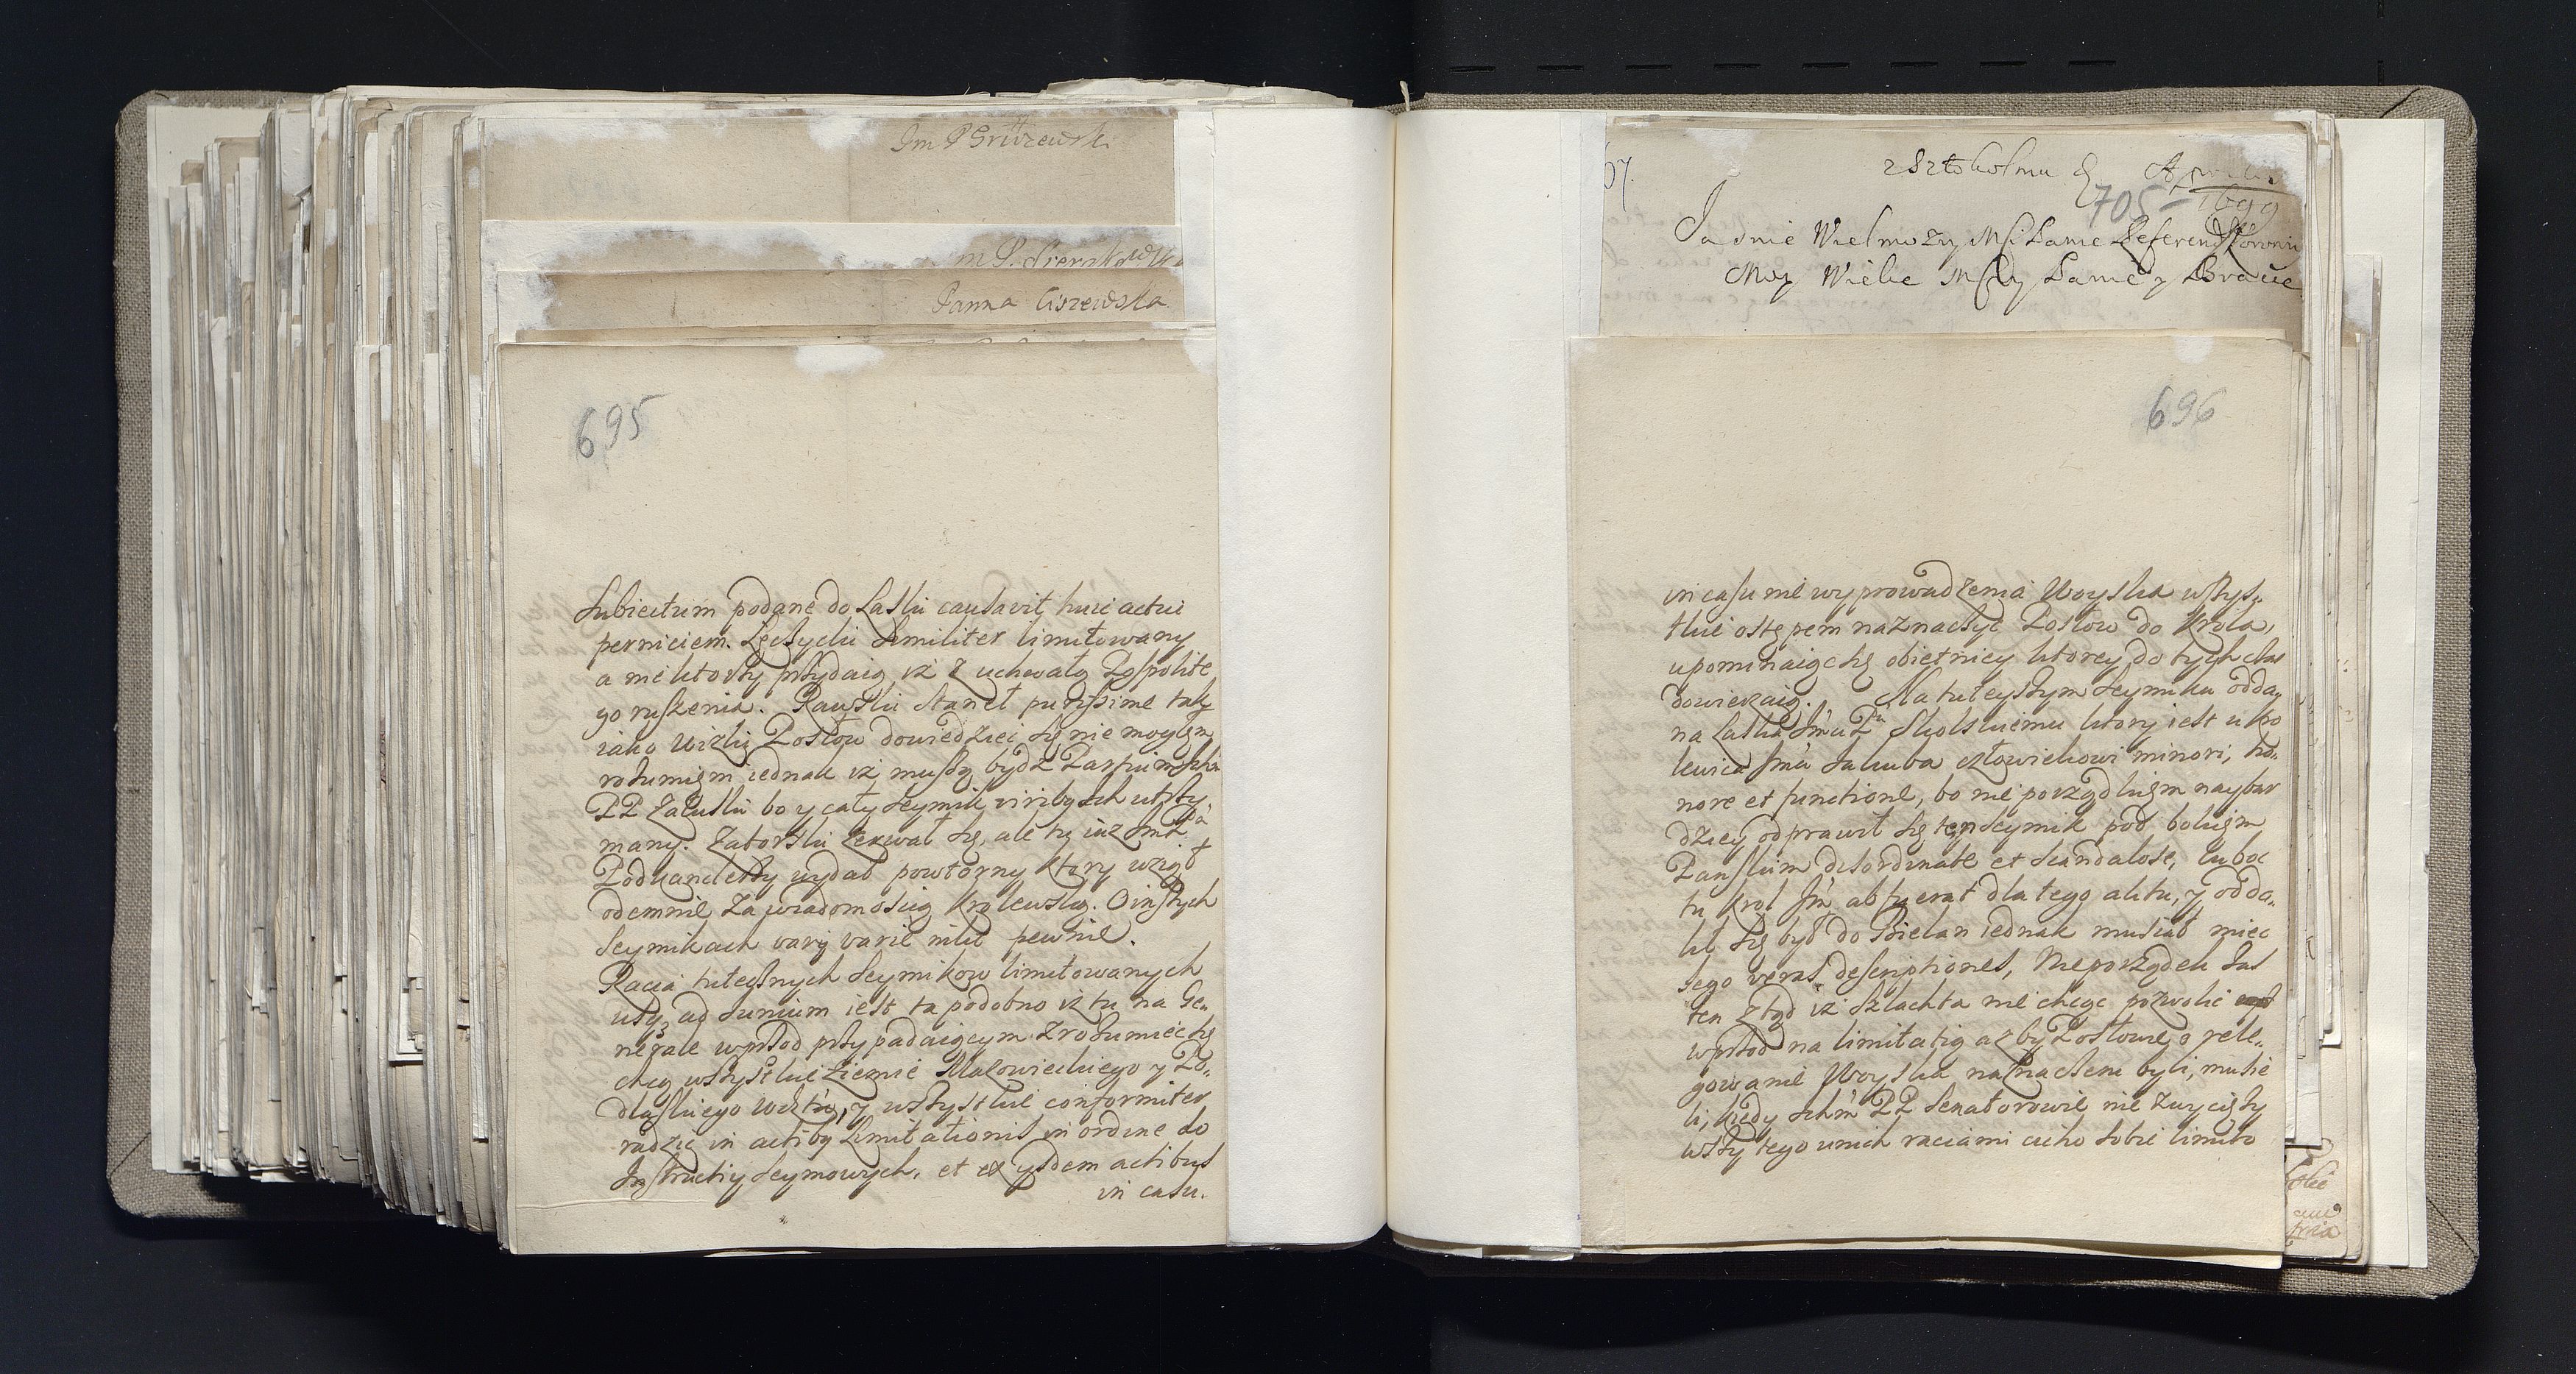 Im P Gruzewski
m P. Sierakowski
Panna Ciszewska
695
Subiectum podane do Laski causavit huic actui
perniciem. Łęczycki similiter limitowany
a niektorzy przydaią, iż z uchwałą Pospolite
go ruszenia. Rawski staneł purissime tak
iako Wizki Posłow dowiedziec się nie mogłem
rozumiem iednak iż muszą bydz
PP Załuski bo y cały Seymik viribus Ich utrzy,
many. Zatorski zerwał się, ale tu iuż Imć Pa
Podkanclerzy wydał powtorny ktory wziął
odemnie za wiadomoscią Krolewską. O inszych
Seymikach varij varie nihil pewnie.
Racia tutecznych Seymikow limitowanych
usq ad Junium iest ta podobno iż tu na Ge,
nerale wprzod przypadaiącym zrozumiec się
chcą wszystkie Ziemie Mazowieckiego y Po,
dlaskiego Wdztw, y wszystkie conformiter
radzic in actibq Limitationis in ordine do
Instructiy Seymowych, et ex ijsdem actibus
in casu.
67.
z Sztokolmu d Aprilis
705 - 1699
Jasnie Wielmozny Mści Panie Referend Koronny
Moy Wielce Mściwy Panie y Bracie
696
in casu nie wyprowadzenia Woyska wszys,
tkie ostępem naznaczyc Posłow do Krola,
upominaiąc się obietnicy ktorey do tych czas
dowierzaią. Na tuteyszym Seymiku odda,
na Laska Imci Pu Skolskiemu ktory iest u Kro
lewica Imci Jakuba człowiekowi minori, ho,
nore et functione, bo nieporządkiem naybar
dziey odprawił się ten Seymik pod bokiem
Panskim disordinate et scandalose, luboc
tu Krol Im abfuerat dla tego aktu, y odda,
lił się był do Bielan iednak musiał miec
iego veras descriptiones, Nieporządek zas
ten ztąd iż szlachta nie chcąc pozwolic
wprzod na limitatią azby Posłowie o rele,
gowanie Woyska naznaczeni byli, musie
li, kiedy Ich m PP Senatorowie nie zwyciezy
wszy tego umich raciami cicho sobie limito